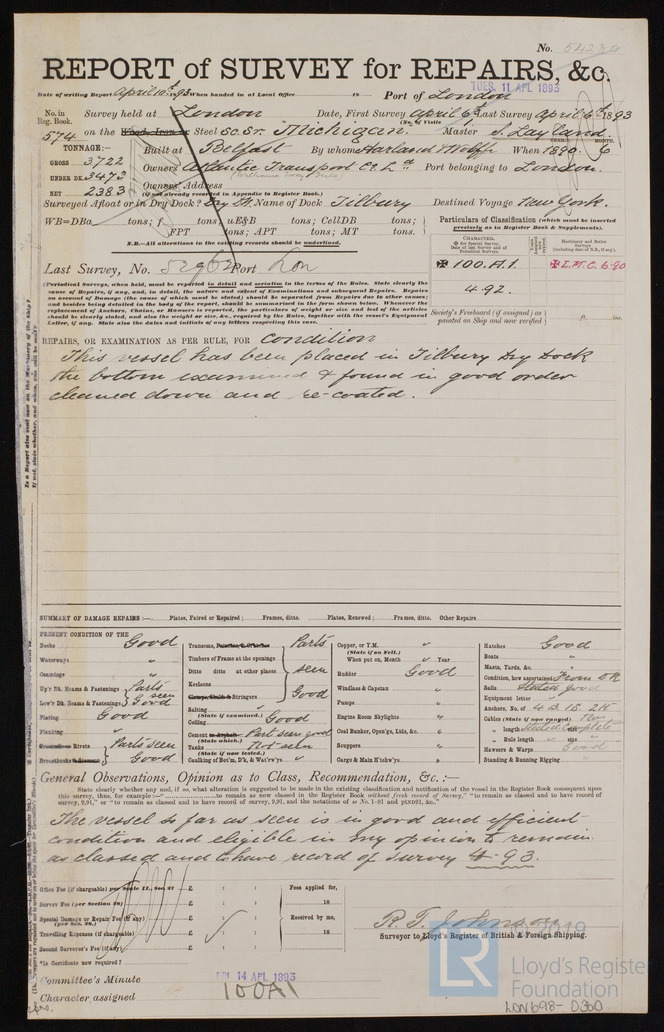 No. 
REPORT of SURVEY for REPAIRS, &c.
Date of writing Report April 10th 1893 When handed in at Local Office 18 Port of London
TUES. 11 APL 1893
No. in Reg. Book. Survey held at London Date, First Survey April 6th Last Survey April 6th 1893
574 on the Wood, Iron or Steel Sc. Sr. "Michigan. Master S. Layland.
TONNAGE:— Built at Belfast By whom Harland & Wolff When 1890. 6
GROSS 3722 Owners Atlantic Transport Co. Ld Port belonging to London.
UNDER DK. 3473 Owners' Address
NET 2383 (if not already recorded in Appendix to Register Book.)
Surveyed Afloat or in Dry Dock? Dry Dk. Name of Dock Tilbury Destined Voyage New York.
WB=DBa tons; f tons; uE&B tons; CellDB tons;
FPT tons; APT tons; MT tons.
N.B.—All alterations in the existing records should be underlined.
Particulars of Classification (which must be inserted precisely as in Register Book & Supplements).
CHARACTER. Machinery and Boiler Surveys
✠ 100.A.1. ✠ L.M.C. 6.90
4.92.
Last Survey, No. 52962 Port Lon
(Periodical Surveys, when held, must be reported in detail and seriatim in the terms of the Rules. State clearly the
cause of Repairs, if any, and, in detail, the nature and extent of Examinations and subsequent Repairs. Repairs
on account of Damage (the cause of which must be stated) should be separated from Repairs due to other causes;
and besides being detailed in the body of the report, should be summarised in the form shown below. Whenever the
replacement of Anchors, Chains, or Hawsers is reported, the particulars of weight or size and test of the articles
should be clearly stated, and also the weight or size, &c., required by the Rules, together with the vessel's Equipment
Letter, if any. State also the dates and initials of any letters respecting this case.
Society's Freeboard (if assigned) as painted on Ship and now verified } ft. ins.
REPAIRS, OR EXAMINATION AS PER RULE, FOR Condition
This vessel has been placed in Tilbury Dry Dock
the bottom examined & found in good order
cleaned down and re-coated.
SUMMARY OF DAMAGE REPAIRS:— Plates, Faired or Repaired; Frames, ditto. Plates, Renewed; Frames, ditto. Other Repairs
PRESENT CONDITION OF THE
Decks Good
Waterways "
Coamings "
Up'r Dk. Beams & Fastenings Parts seen
Low'r Dk. Beams & Fastenings Good
Plating Good
Planking "
Rivets Parts seen
Breasthooks Good
Transoms, Parts
Timbers of Frame at the openings
Ditto ditto at other places seen
Keelsons
Stringers Good
Salting "
(State if examined.)
Ceiling Good
Cement Part seen good
(State which.)
Tanks Not seen
(State if now tested.)
Caulking of Bot'm, D'k, & Wat'rw'ys "
Copper, or Y.M. "
(State if on Felt.)
When put on, Month " Year
Rudder Good
Windlass & Capstan "
Pumps "
Engine Room Skylights "
Coal Bunker, Open'gs, Lids, &c. 6
Scuppers "
Cargo & Main H'chw'ys "
Hatches Good
Boats "
Masts, Yards, &c. "
Condition, how ascertained From Dk
Sails Stated good
Equipment letter "
Anchors, No. of 4 B. 1S. 2K.
Cables (State if now ranged) No
" length Stated Complete
" Rule length " size "
Hawsers & Warps Good
Standing & Running Rigging
General Observations, Opinion as to Class, Recommendation, &c.:—
State clearly whether any, and if so, what alteration is suggested to be made in the existing classification and notification of the vessel in the Register Book consequent upon
this survey, thus, for example:—" to remain as now classed in the Register Book without fresh record of Survey," "to remain as classed and to have record of
survey, 9,91," or "to remain as classed and to have record of survey, 9,91, and the notations of
The vessel so far as seen is in good and efficient
condition and eligible in my opinion to remain
as classed and to have record of Survey 4.93.
Office Fee (if chargeable) per Scale II., Sec. 27 £ : :
Survey Fee (per Section 28) £ : :
Special Damage or Repair Fee (if any) (per Sec. 28.) £ : :
Travelling Expenses (if chargeable) £ : :
Second Surveyor's Fee (if any) £ : :
Fees applied for, 18
Received by me, 18
*Is Certificate now required?
R. T. Johnson
Surveyor to Lloyd's Register of British & Foreign Shipping.
Committee's Minute FRI. 14 APL 1893
Character assigned 100A1
© 2019
LR
Lloyd's Register
Foundation
LON698-0360